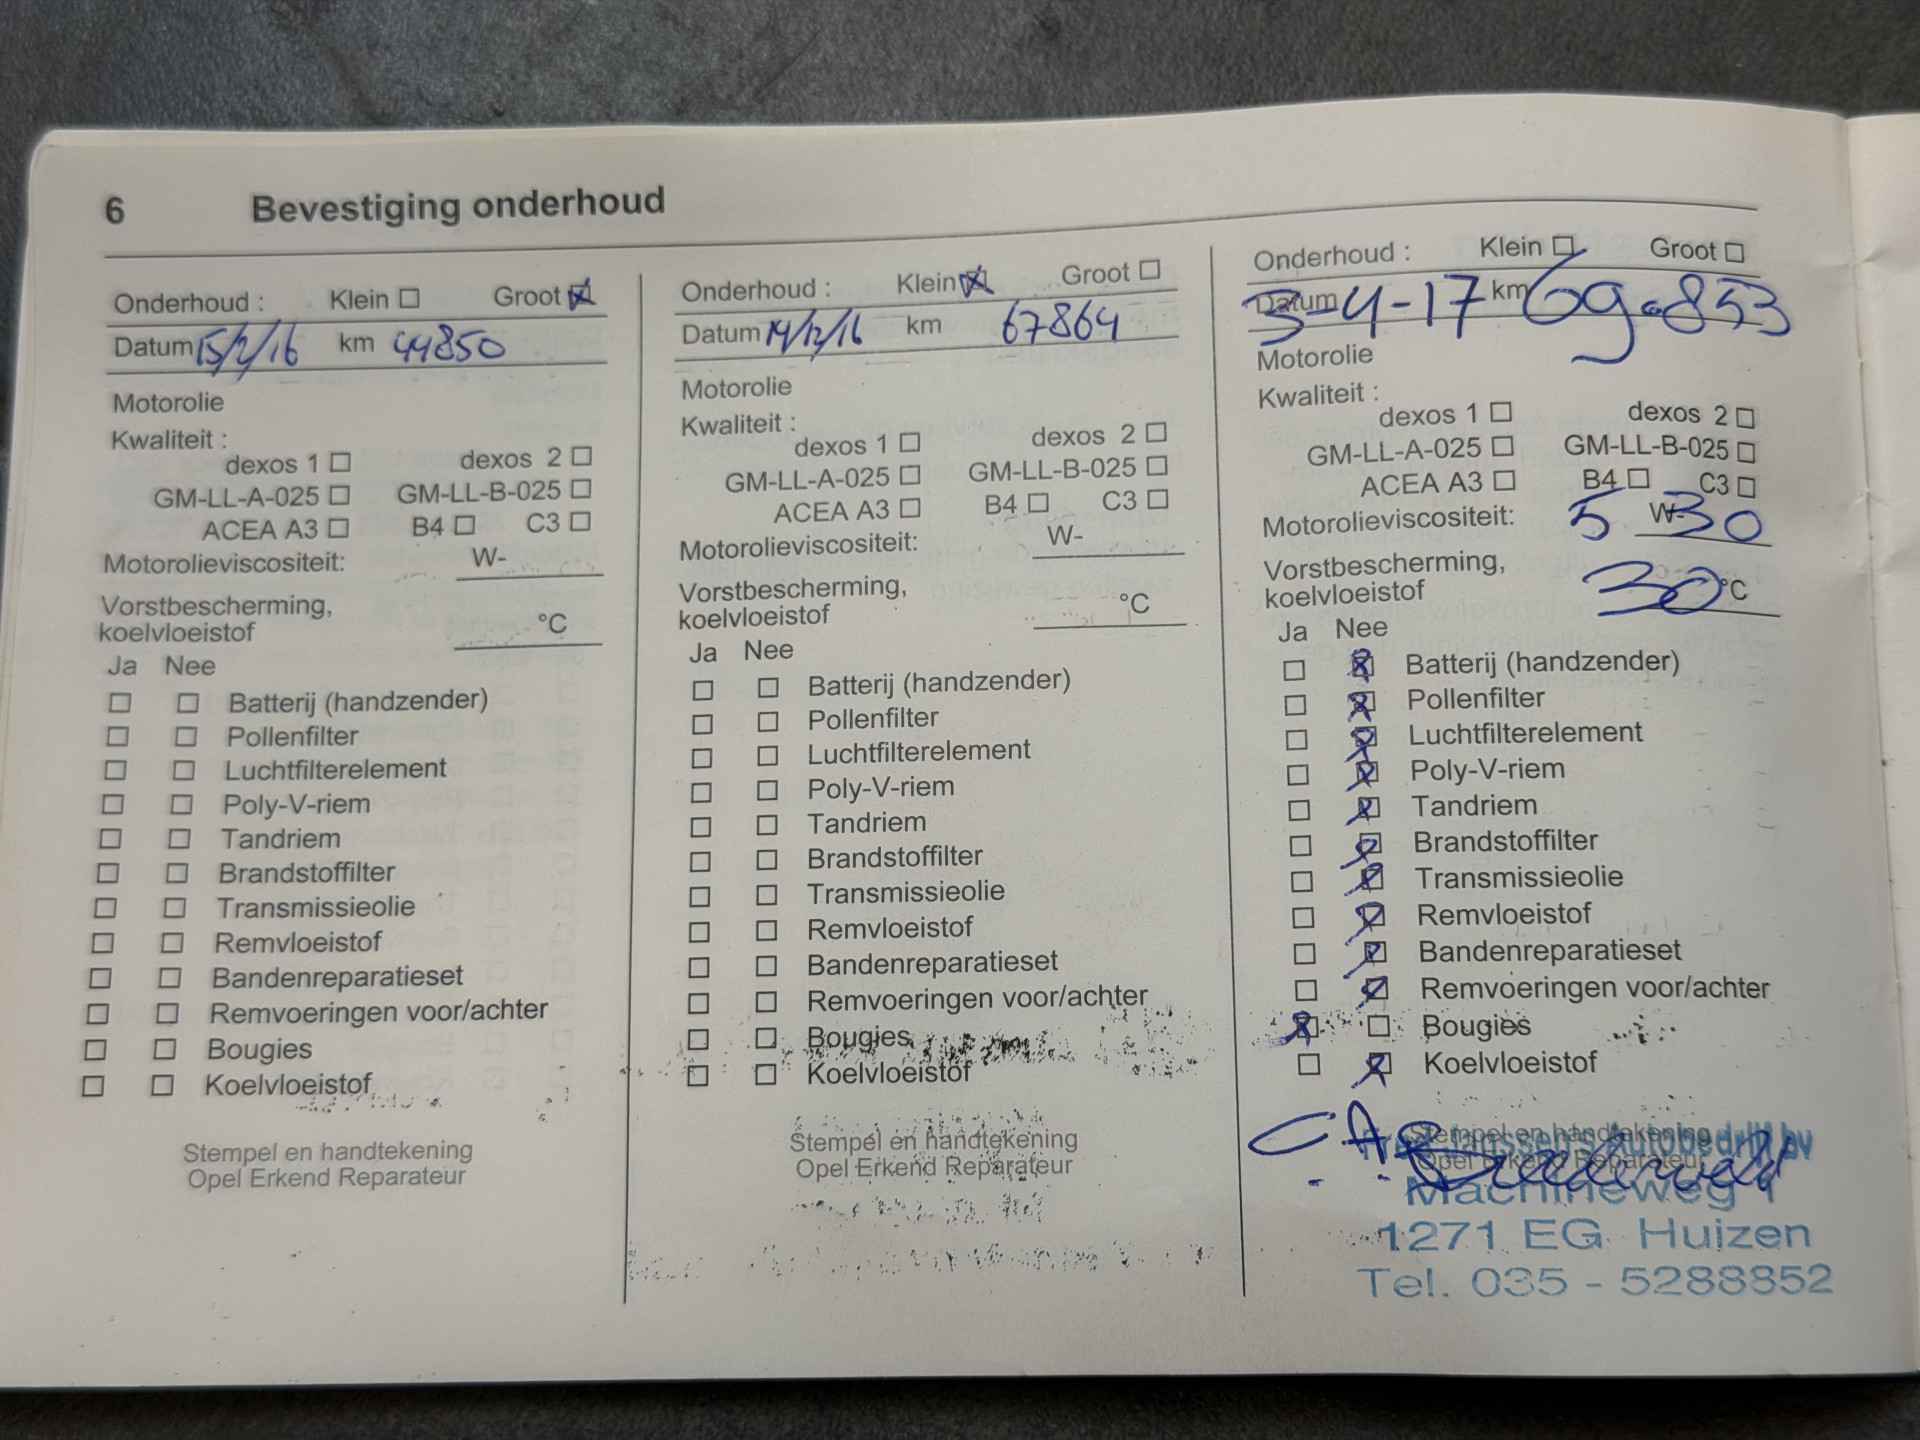 6 Bevestiging onderhoud
Onderhoud : Klein ☐ Groot ☒
Datum 15/2/16 km 44850
Motorolie
Kwaliteit :
dexos 1 ☐ dexos 2 ☐
GM-LL-A-025 ☐ GM-LL-B-025 ☐
ACEA A3 ☐ B4 ☐ C3 ☐
Motorolieviscositeit: W-
Vorstbescherming,
koelvloeistof °C
Ja Nee
☐ ☐ Batterij (handzender)
☐ ☐ Pollenfilter
☐ ☐ Luchtfilterelement
☐ ☐ Poly-V-riem
☐ ☐ Tandriem
☐ ☐ Brandstoffilter
☐ ☐ Transmissieolie
☐ ☐ Remvloeistof
☐ ☐ Bandenreparatieset
☐ ☐ Remvoeringen voor/achter
☐ ☐ Bougies
☐ ☐ Koelvloeistof
Stempel en handtekening
Opel Erkend Reparateur
Onderhoud : Klein ☒ Groot ☐
Datum 14/12/16 km 67864
Motorolie
Kwaliteit :
dexos 1 ☐ dexos 2 ☐
GM-LL-A-025 ☐ GM-LL-B-025 ☐
ACEA A3 ☐ B4 ☐ C3 ☐
Motorolieviscositeit: W-
Vorstbescherming,
koelvloeistof °C
Ja Nee
☐ ☐ Batterij (handzender)
☐ ☐ Pollenfilter
☐ ☐ Luchtfilterelement
☐ ☐ Poly-V-riem
☐ ☐ Tandriem
☐ ☐ Brandstoffilter
☐ ☐ Transmissieolie
☐ ☐ Remvloeistof
☐ ☐ Bandenreparatieset
☐ ☐ Remvoeringen voor/achter
☐ ☐ Bougies
☐ ☐ Koelvloeistof
Stempel en handtekening
Opel Erkend Reparateur
Onderhoud : Klein ☐ Groot ☐
Datum 3-4-17 km 69.853
Motorolie
Kwaliteit :
dexos 1 ☐ dexos 2 ☐
GM-LL-A-025 ☐ GM-LL-B-025 ☐
ACEA A3 ☐ B4 ☐ C3 ☐
Motorolieviscositeit: 5 W-30
Vorstbescherming,
koelvloeistof 30 °C
Ja Nee
☐ ☒ Batterij (handzender)
☐ ☒ Pollenfilter
☐ ☒ Luchtfilterelement
☐ ☒ Poly-V-riem
☐ ☒ Tandriem
☐ ☒ Brandstoffilter
☐ ☒ Transmissieolie
☐ ☒ Remvloeistof
☐ ☒ Bandenreparatieset
☐ ☒ Remvoeringen voor/achter
☒ ☐ Bougies
☐ ☒ Koelvloeistof
Stempel en handtekening
Opel Erkend Reparateur
Janssens Autobedrijf bv
Machineweg 1
1271 EG Huizen
Tel. 035 - 5288852